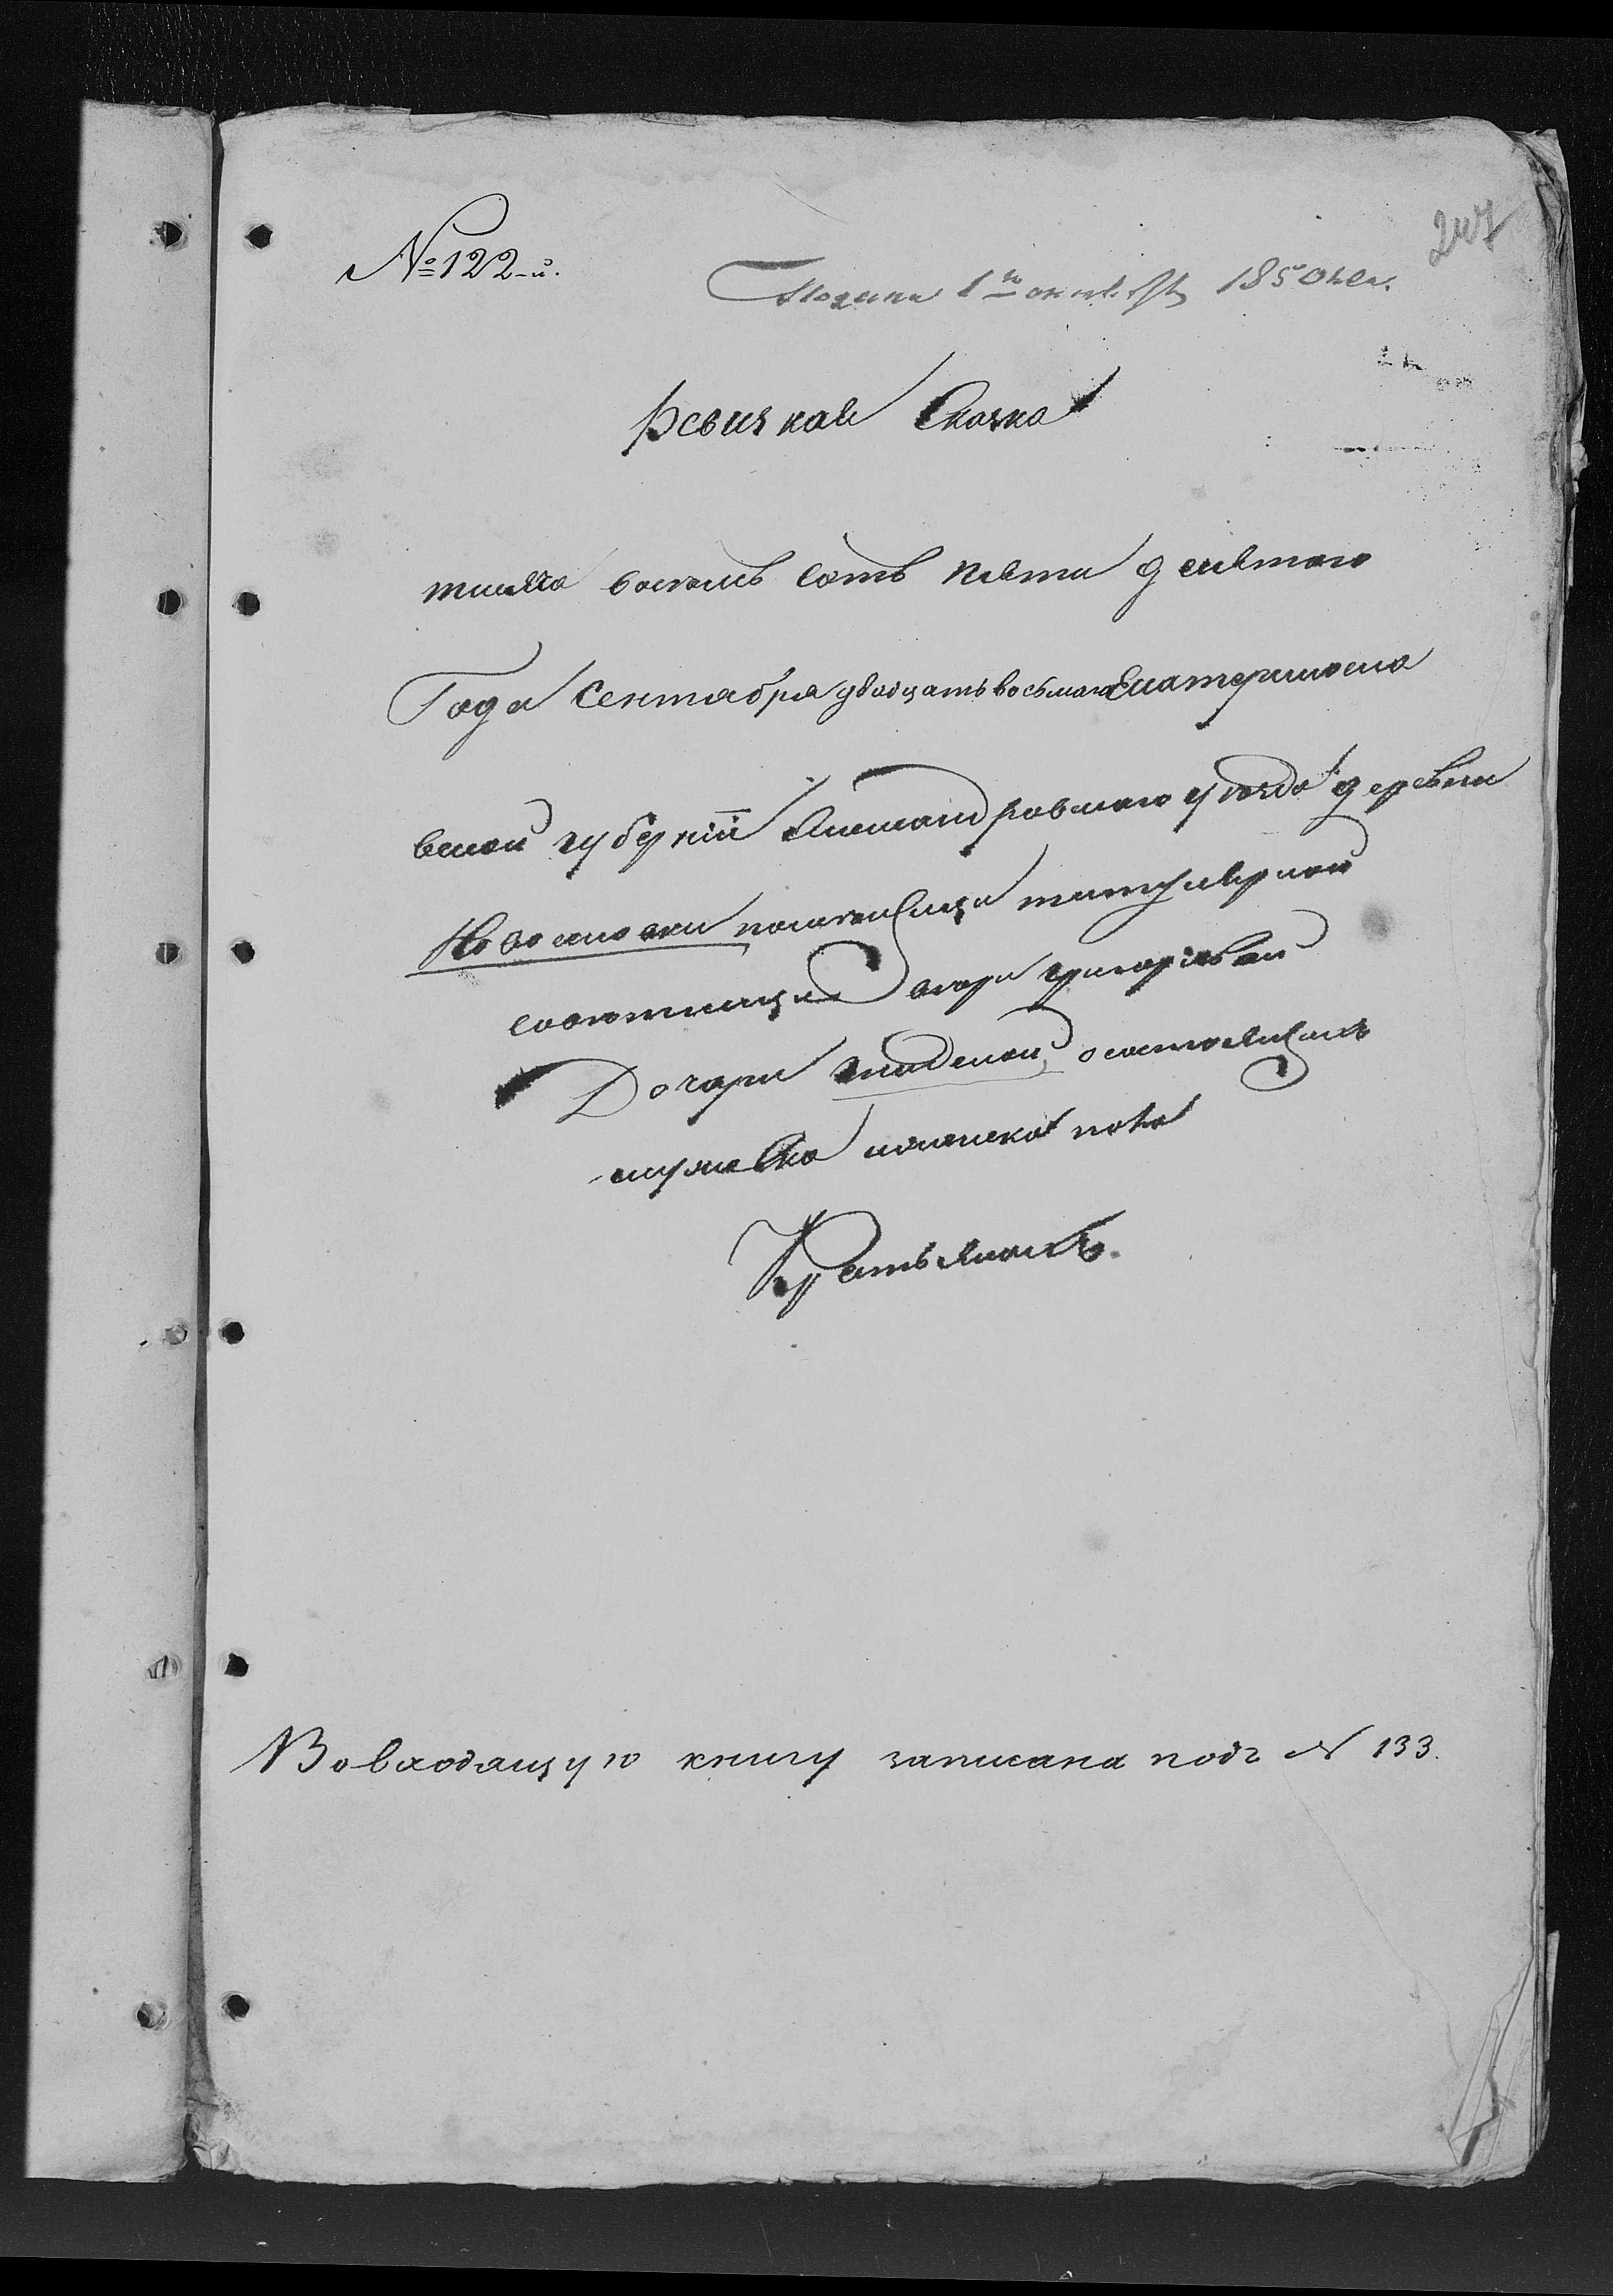 № 122-й.
247
Подана 1го октября 1850 года.
Ревизкая Сказка
тысяча восемь сотъ пяти десятаго
Года Сентября двадцать восьмаго Екатериносла
вской губерніи Александровскаго уезда деревни
Новоселовки помещицы титулярной
советницы григоріевой
Дочери о состоящихъ
мужеска и женска пола
Крестьянахъ.
Во входящую книгу записана подъ № 133.